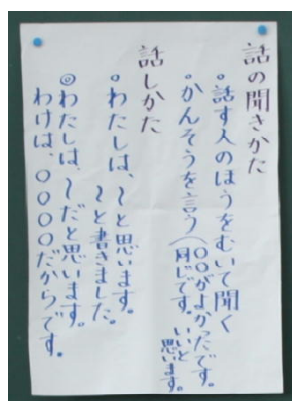 話の聞きかた
。話す人のほうをむいて聞く
。かんそうを言う(〇〇がよかったです。
同じです。いいと
思います。
話しかた
。わたしは、〜と思います。
〜と書きました。
◎わたしは、〜だと思います。
わけは、〇〇〇〇だからです。